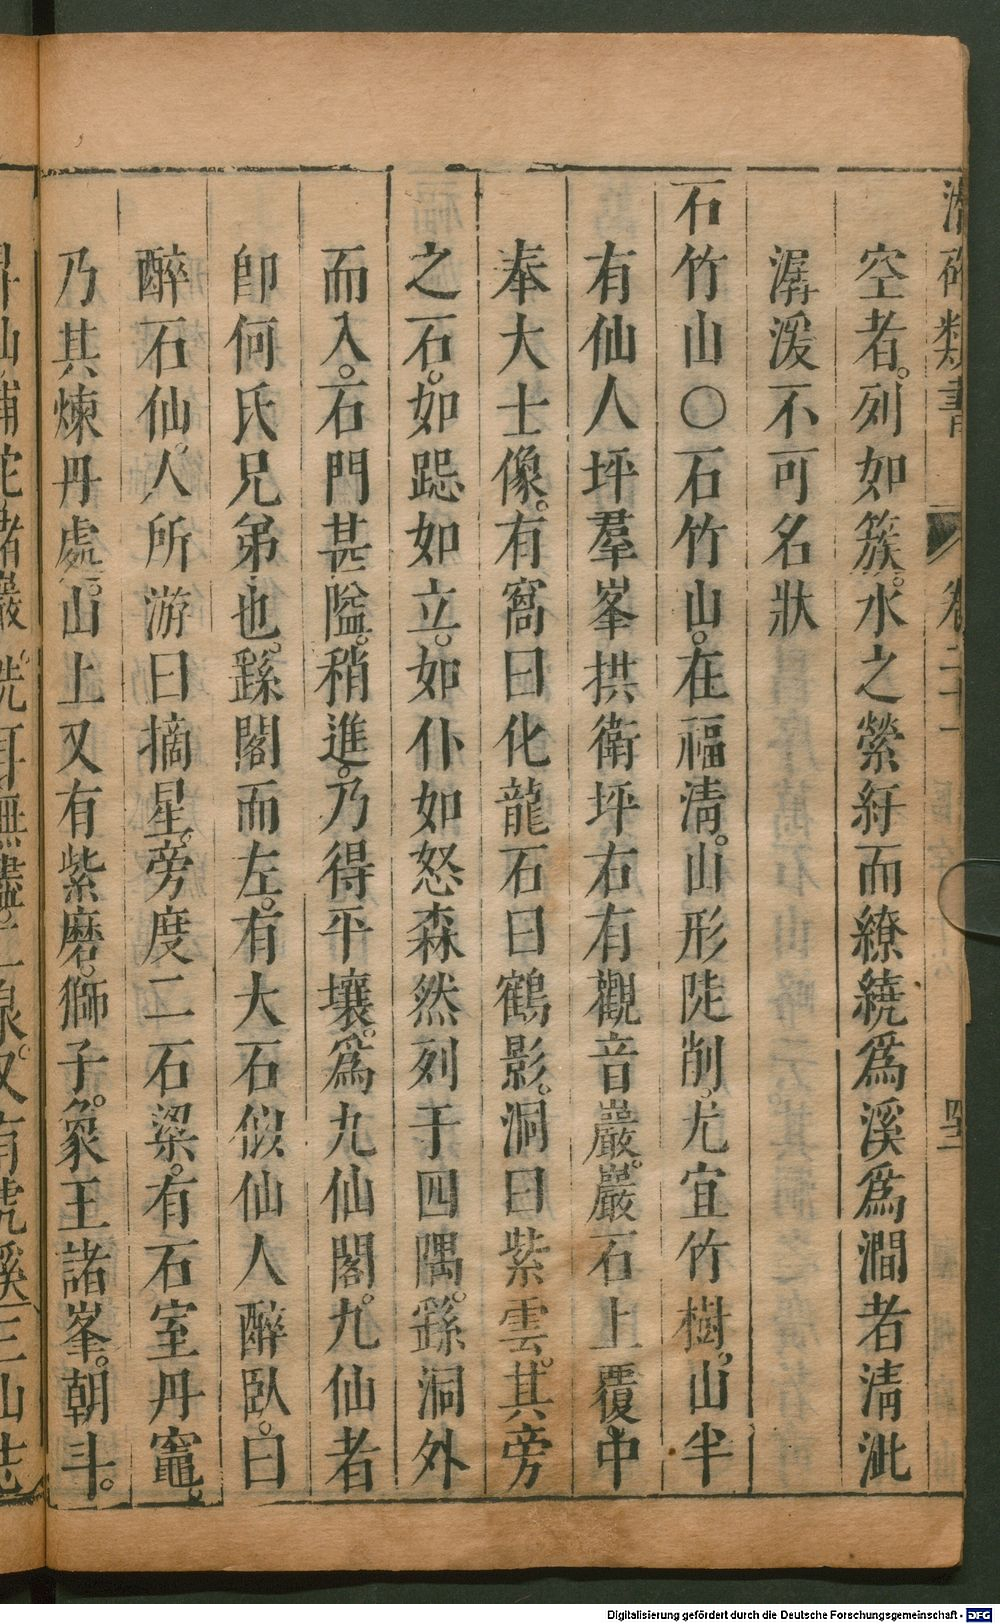 潛確類書 卷二十一
空者。列如簇。水之縈紆而繚繞爲溪爲澗者淸泚
潺湲不可名狀
石竹山〇石竹山。在福淸。山形陡削。尤宜竹樹。山半
有仙人坪羣峯拱衛坪右有觀音巖。巖石上覆。中
奉大士像。有窩曰化龍石曰鶴影。洞曰紫雲。其旁
之石。如跽如立。如仆如怒森然列于四隅。繇洞外
而入。石門甚隘。稍進。乃得平壤。爲九仙閣。九仙者
卽何氏兄弟也。繇閣而左。有大石似仙人醉臥。曰
醉石仙。人所游曰摘星。旁度二石梁。有石室丹竈。
乃其煉丹處。山上又有紫磨。獅子。象王諸峯。朝斗。